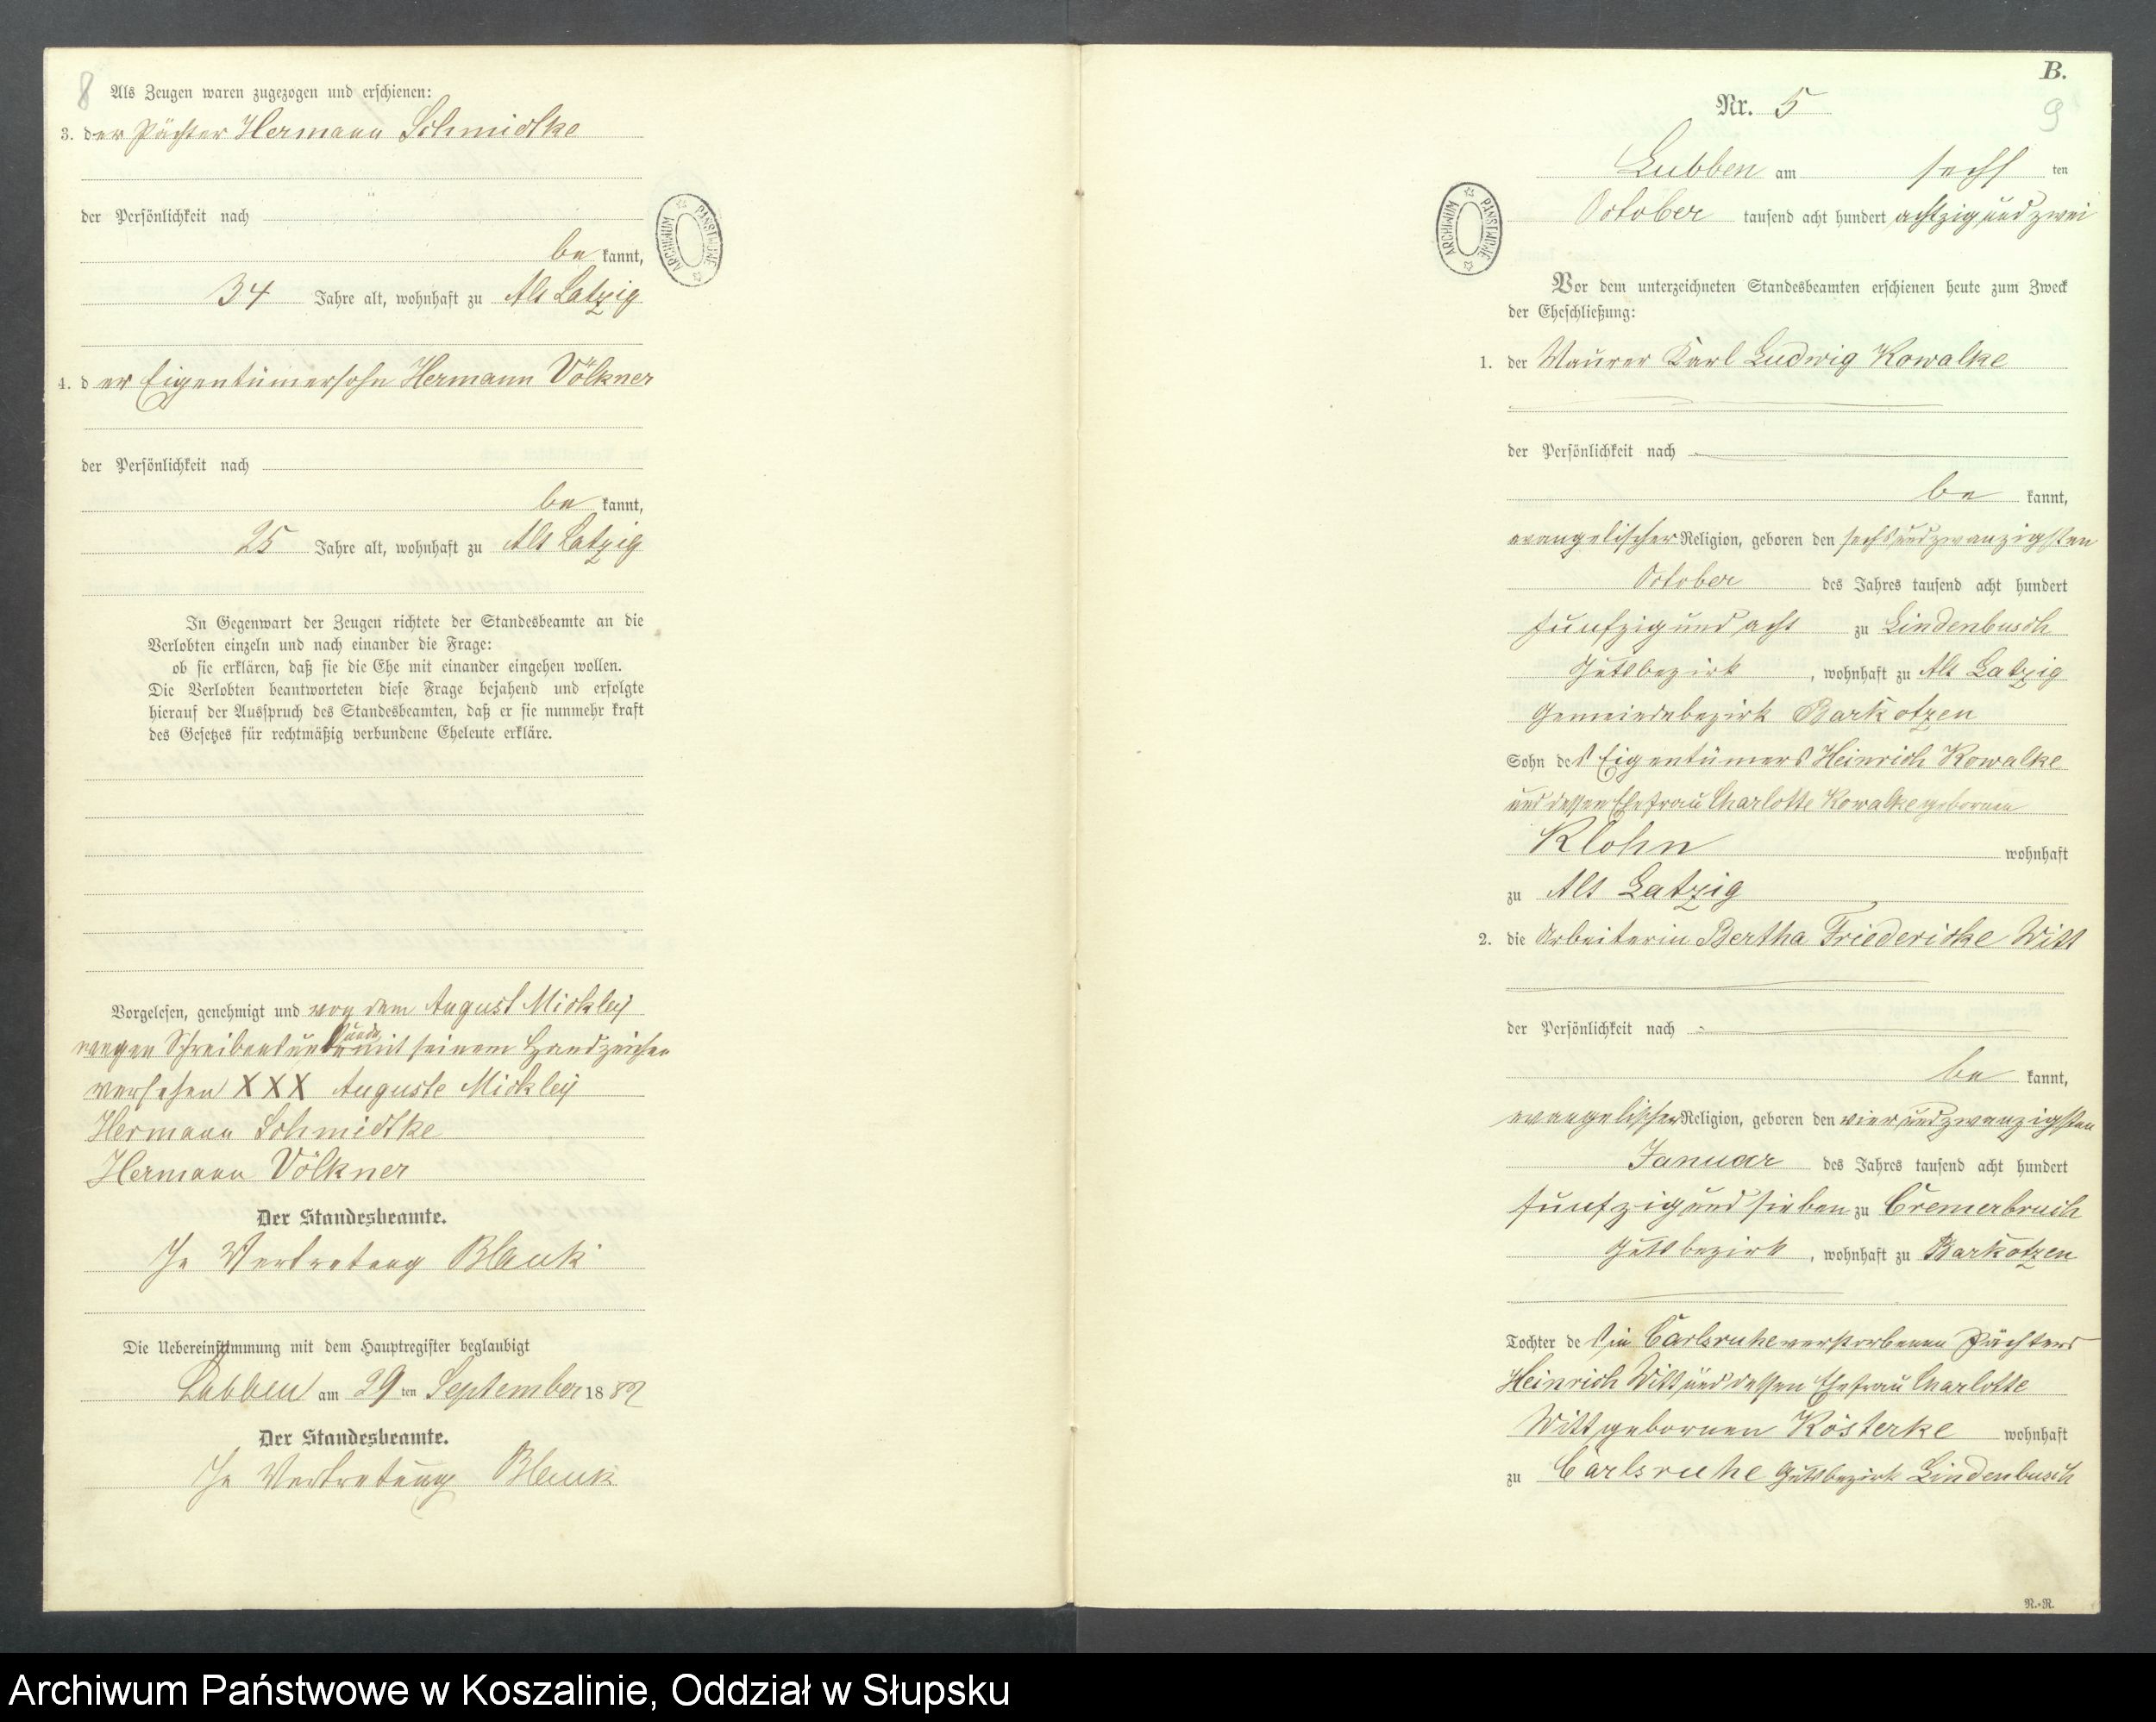 8
Als Zeugen waren zugezogen und erschienen:
3. der Pächter Hermann Schmidtke
der Persönlichkeit nach
be kannt,
34 Jahre alt, wohnhaft zu Alt Latzig
4. der Eigentümersohn Hermann Völkner
der Persönlichkeit nach
be kannt,
25 Jahre alt, wohnhaft zu Alt Latzig
In Gegenwart der Zeugen richtete der Standesbeamte an die
Verlobten einzeln und nach einander die Frage:
ob sie erklären, daß sie die Ehe mit einander eingehen wollen.
Die Verlobten beantworteten diese Frage bejahend und erfolgte
hierauf der Ausspruch des Standesbeamten, daß er sie nunmehr kraft
des Gesetzes für rechtmäßig verbundene Eheleute erkläre.
Vorgelesen, genehmigt und von dem August Mickley
wegen Schreibensunkunde mit seinem Handzeichen
versehen XXX Auguste Mickley
Hermann Schmidtke
Hermann Völkner
Der Standesbeamte.
In Vertretung Blauk
Die Uebereinstimmung mit dem Hauptregister beglaubigt
Lubben am 29 ten September 1882
Der Standesbeamte.
In Vertretung Blauk
ARCHIWUM PAŃSTWOWE
B.
Nr. 5
9
Lubben am sechs ten
October tausend acht hundert achtzig und zwei
ARCHIWUM PAŃSTWOWE
Vor dem unterzeichneten Standesbeamten erschienen heute zum Zweck
der Eheschließung:
1. der Maurer Karl Ludwig Kowalke
der Persönlichkeit nach
be kannt,
evangelischer Religion, geboren den sechsundzwanzigsten
October des Jahres tausend acht hundert
funfzig und acht zu Lindenbusch
Gutsbezirk, wohnhaft zu Alt Latzig
Gemeindebezirk Barkotzen
Sohn des Eigentümers Heinrich Kowalke
und dessen Ehefrau Charlotte Kowalke gebornen
Klohn wohnhaft
zu Alt Latzig
2. die Arbeiterin Bertha Friedericke Witt
der Persönlichkeit nach
be kannt,
evangelischer Religion, geboren den vierundzwanzigsten
Januar des Jahres tausend acht hundert
funfzig und sieben zu Cremerbruch
Gutsbezirk, wohnhaft zu Barkotzen
Tochter des in Carlsruhe verstorbenen Pächters
Heinrich Witt und dessen Ehefrau Charlotte
Witt gebornen Kösterke wohnhaft
zu Carlsruhe Gutsbezirk Lindenbusch
N.-R.
Archiwum Państwowe w Koszalinie, Oddział w Słupsku